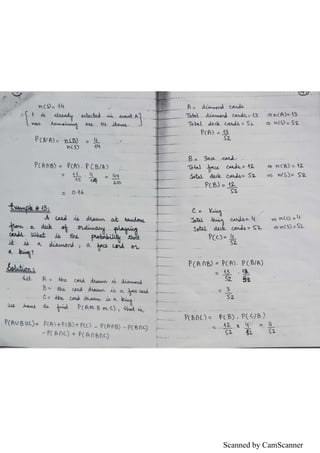 n(S) = 14
{ 1 is already selected in event A }
{ now remaining are 14 items. }
P(B/A) = n(B)/n(S) = 4/14
P(A∩B) = P(A) · P(B/A)
= 11/15 · 4/14 = 44/210
= 0.16
Example # 13:
A card is drawn at random
from a deck of ordinary playing
cards. What is the probability that
it is a diamond, a face card or
a king?
Solution:
Let A = the card drawn is diamond
B = the card drawn is a face card
C = the card drawn is a king
we have to find P(A or B or C), that is,
P(A∪B∪C) = P(A)+P(B)+P(C) - P(A∩B) - P(B∩C)
- P(A∩C) + P(A∩B∩C)
A = diamond cards
Total diamond cards = 13 ⇒ n(A) = 13
Total deck cards = 52 ⇒ n(S) = 52
P(A) = 13/52
B = Face card
Total face cards = 12 ⇒ n(B) = 12
Total deck cards = 52 ⇒ n(S) = 52
P(B) = 12/52
C = King
Total king cards = 4 ⇒ n(C) = 4
Total deck cards = 52 ⇒ n(S) = 52
P(C) = 4/52
P(A∩B) = P(A) · P(B/A)
= 13/52 ·
= 3/52
P(B∩C) = P(B) · P(C/B)
= 12/52 × 4/12 = 4/52
Scanned by CamScanner